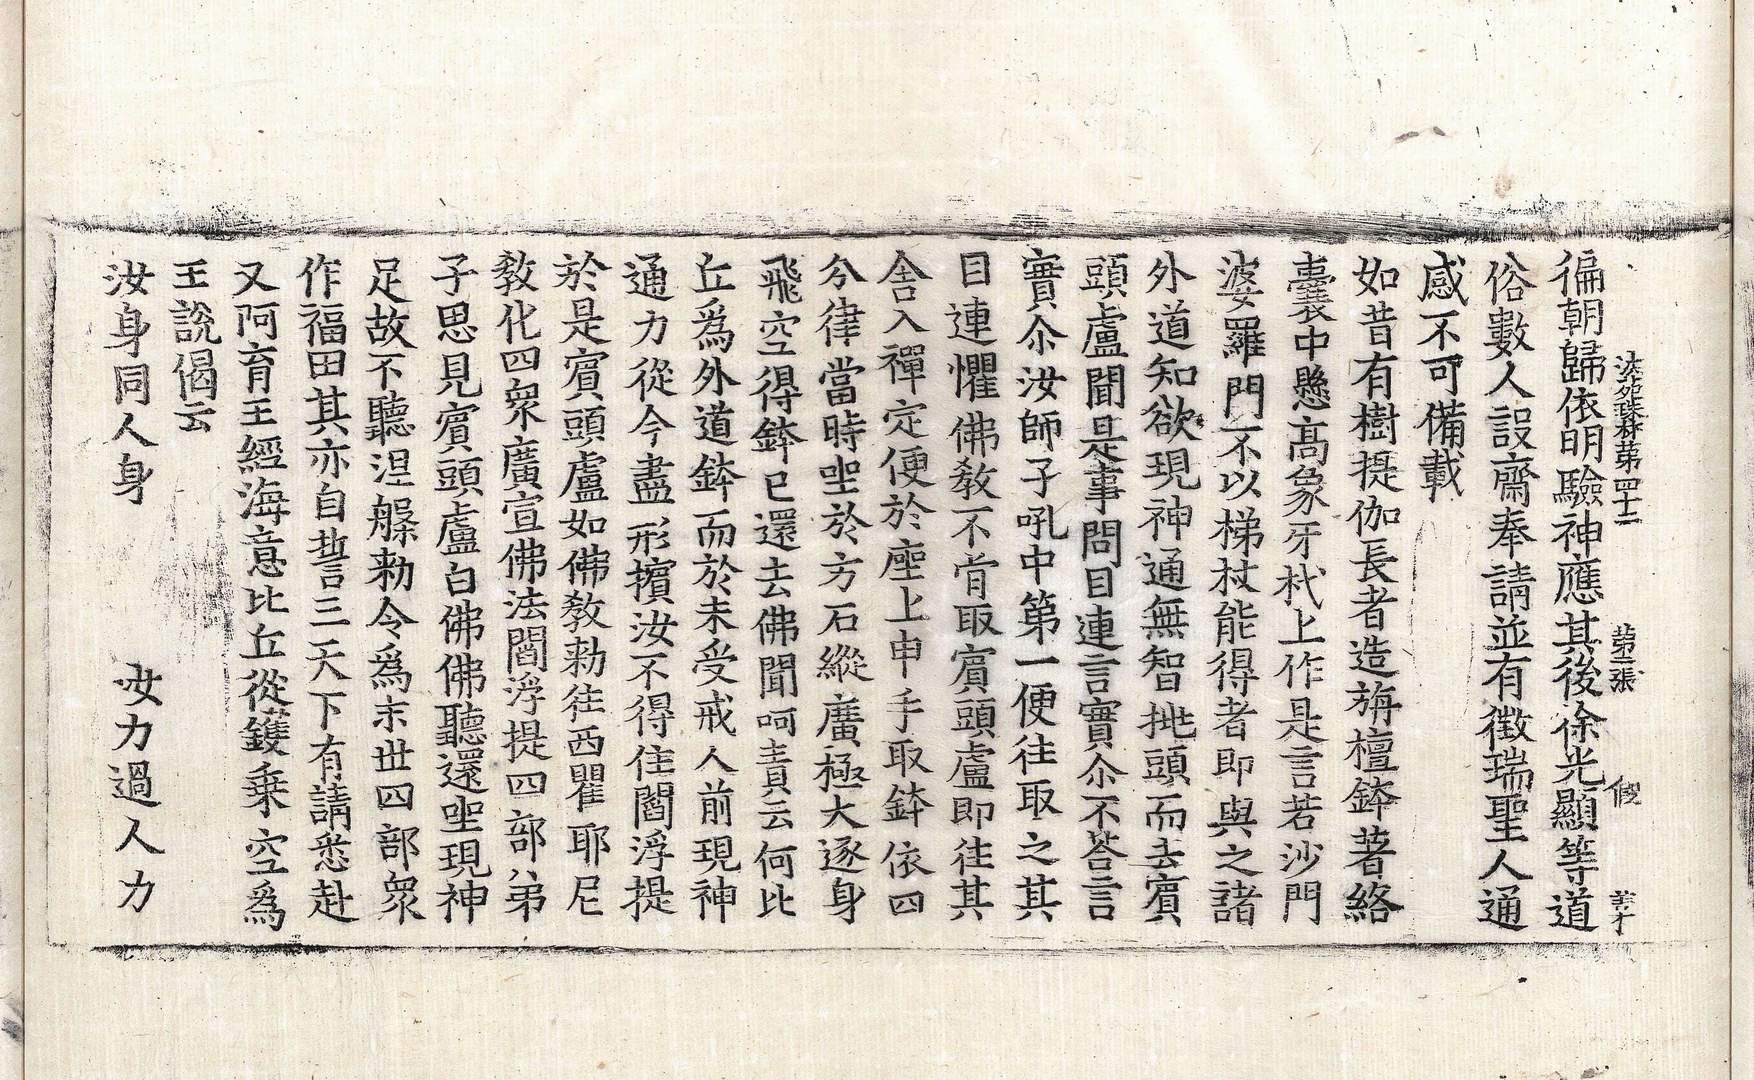 法苑珠林第四十二　第二張　假
徧朝歸依明驗神應其後徐光顯等道
俗數人設齋奉請並有徵瑞聖人通
感不可備載
如昔有樹提伽長者造旃檀鉢著絡
囊中懸高象牙杙上作是言若沙門
婆羅門不以梯杖能得者即與之諸
外道知欲現神通無智挑頭而去賓
頭盧聞是事問目連言實尒不荅言
實尒汝師子吼中第一便往取之其
目連懼佛敎不肯取賓頭盧即往其
舍入禪定便於座上申手取鉢依四
分律當時坐於方石縱廣極大逐身
飛空得鉢已還去佛聞呵責云何比
丘爲外道鉢而於未受戒人前現神
通力從今盡形擯汝不得住閻浮提
於是賓頭盧如佛敎勑往西瞿耶尼
敎化四衆廣宣佛法閻浮提四部弟
子思見賓頭盧白佛佛聽還坐現神
足故不聽涅槃勑令爲末世四部衆
作福田其亦自誓三天下有請悉赴
又阿育王經海意比丘從鑊乗空爲
王說偈云
汝身同人身　汝力過人力